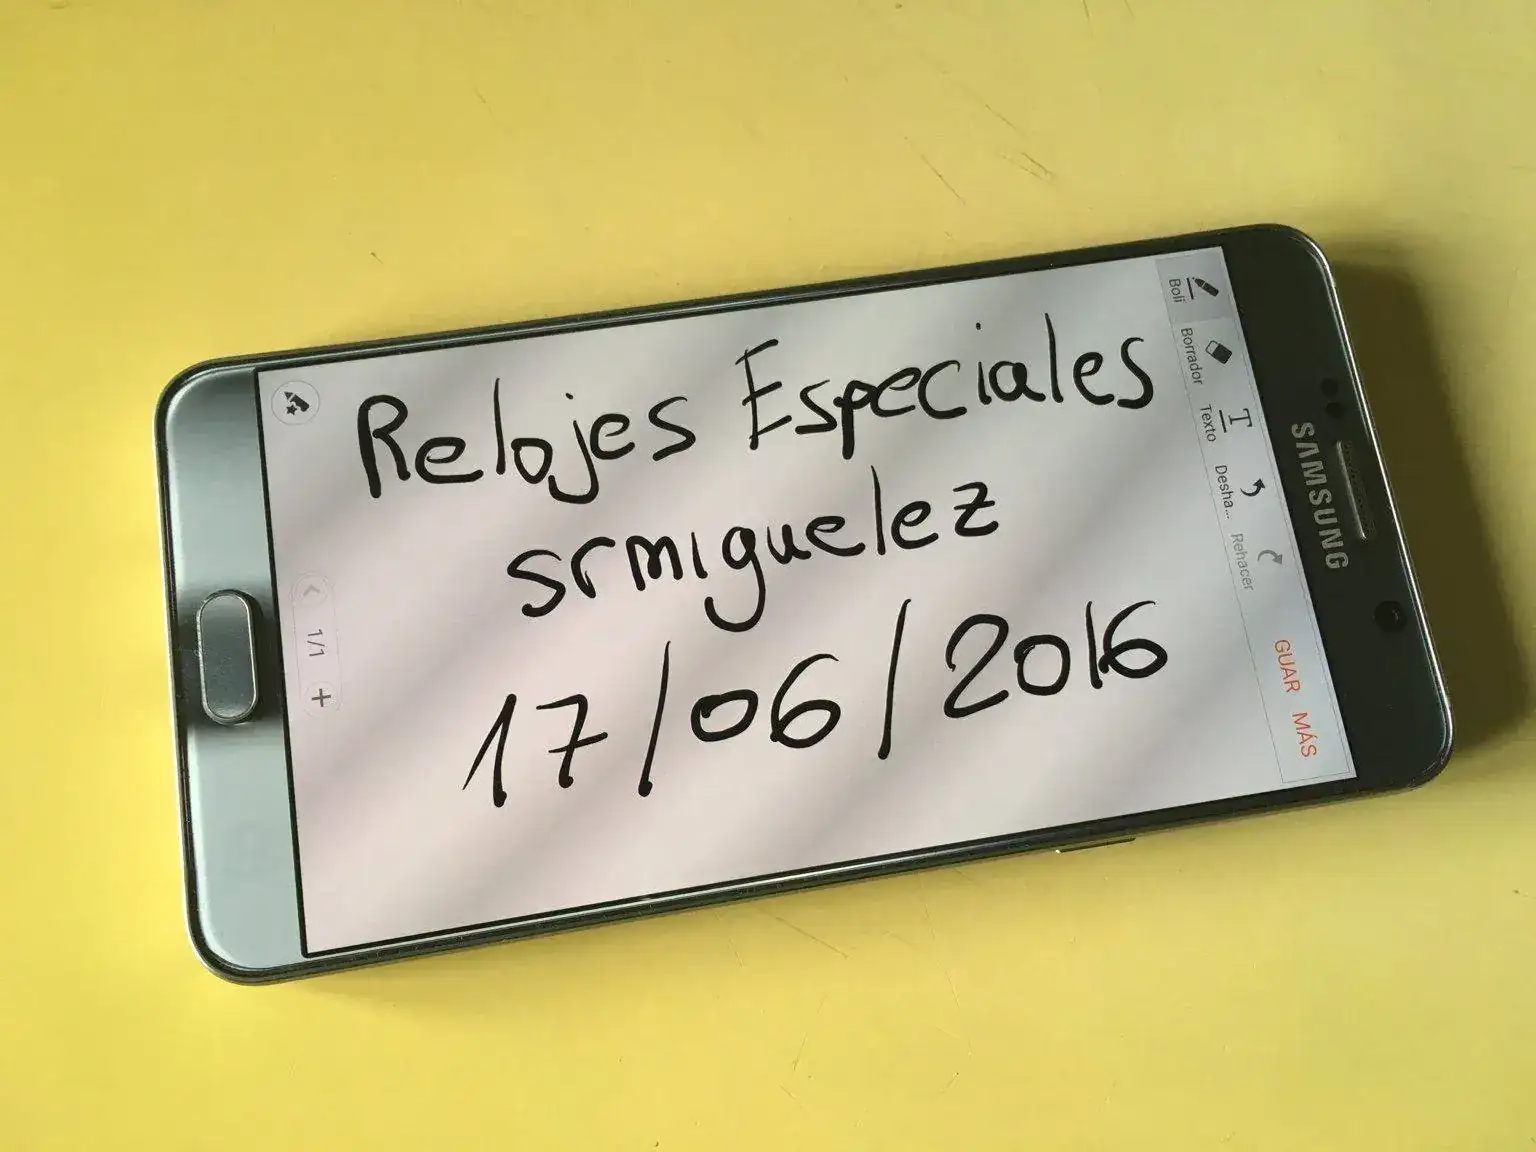 Relojes Especiales
srmiguelez
17/06/2016
Boli
Borrador
Texto
Desha...
Rehacer
GUAR
MÁS
SAMSUNG
1/1